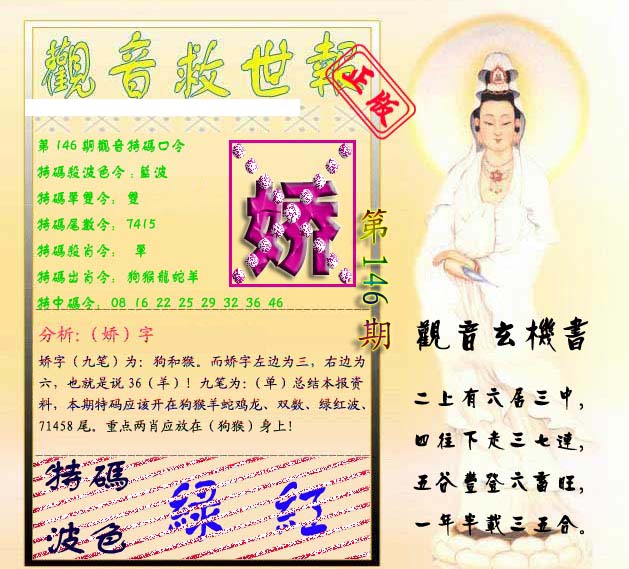 觀音救世報
正版
第146期觀音特碼口令
特碼殺波色令:藍波
特碼單雙令: 雙
特碼尾數令: 7415
特碼殺肖令: 單
特碼出肖令: 狗猴龍蛇羊
特中碼令: 08 16 22 25 29 32 36 46
娇
第146期
分析:(娇)字
娇字(九笔)为:狗和猴。而娇字左边为三,右边为
六,也就是说36(羊)!九笔为:(单)总结本报资
料,本期特码应该开在狗猴羊蛇鸡龙、双数、绿红波、
71458尾。重点两肖应放在(狗猴)身上!
特碼
波色
綠 紅
觀音玄機書
二上有六居三中,
四往下走三七連,
五谷豐登六畜旺,
一年半載三五合。